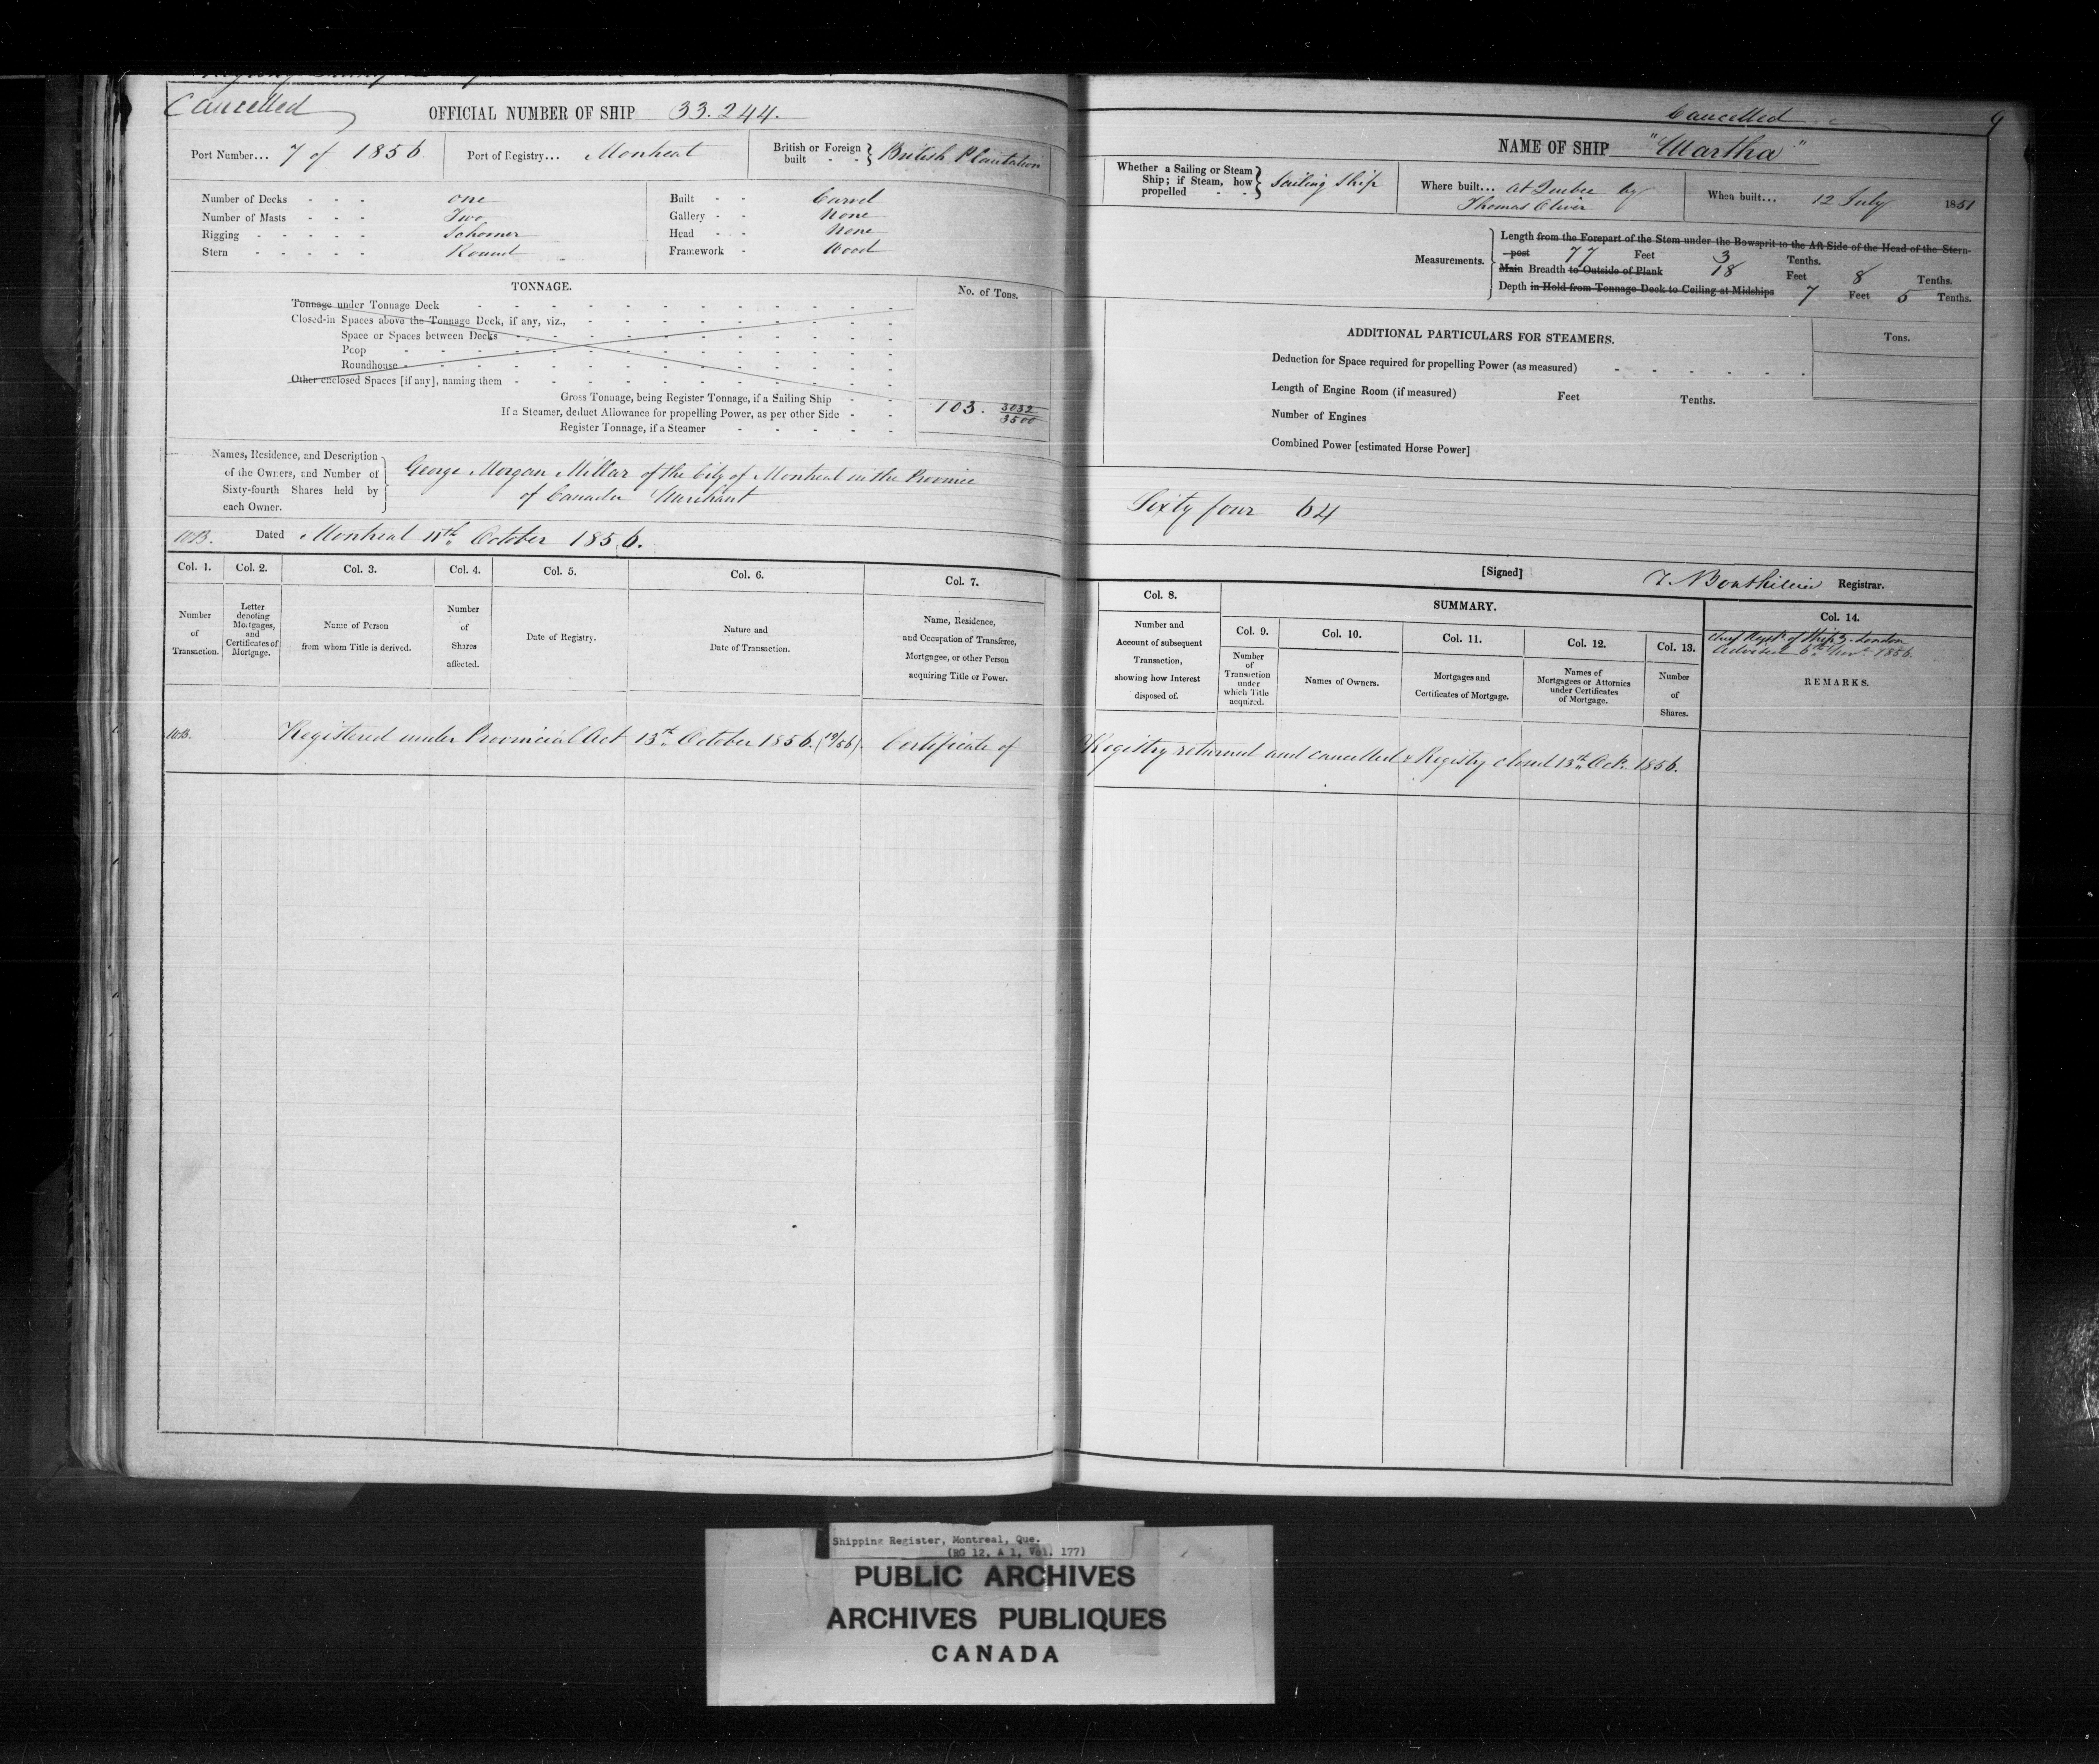 Cancelled
OFFICIAL NUMBER OF SHIP 33.244.
Port Number... 7 of 1856
Port of Registry... Montreal
British or Foreign built - - } British Plantation
Number of Decks - - - one
Number of Masts - - - Two
Rigging - - - - - Schooner
Stern - - - - - Round
Built - - Carvel
Gallery - - None
Head - - None
Framework - Wood
TONNAGE.
No. of Tons.
Tonnage under Tonnage Deck
Closed-in Spaces above the Tonnage Deck, if any, viz.,
Space or Spaces between Decks
Poop
Roundhouse
Other enclosed Spaces [if any], naming them
Gross Tonnage, being Register Tonnage, if a Sailing Ship
If a Steamer, deduct Allowance for propelling Power, as per other Side
103. 3032/3500
Register Tonnage, if a Steamer
Names, Residence, and Description
of the Owners, and Number of
Sixty-fourth Shares held by
each Owner.
George Morgan Millar of the City of Montreal in the Province
of Canada Merchant
Dated Montreal 11th October 1856.
Col. 1.
Col. 2.
Col. 3.
Col. 4.
Col. 5.
Col. 6.
Col. 7.
Number
of
Transaction.
Letter
denoting
Mortgages,
and
Certificates of
Mortgage.
Name of Person
from whom Title is derived.
Number
of
Shares
affected.
Date of Registry.
Nature and
Date of Transaction.
Name, Residence,
and Occupation of Transferee,
Mortgagee, or other Person
acquiring Title or Power.
Registered under Provincial Act 13th October 1856. (19/56). Certificate of
Cancelled
9
NAME OF SHIP "Martha"
Whether a Sailing or Steam
Ship; if Steam, how
propelled - - } Sailing Ship
Where built... at Quebec by
Thomas Oliver
When built... 12 July 1851
Measurements.
Length from the Forepart of the Stem under the Bowsprit to the Aft Side of the Head of the Stern-
post 77 Feet 3 Tenths.
Main Breadth to Outside of Plank 18 Feet 8 Tenths.
Depth in Hold from Tonnage Deck to Ceiling at Midships 7 Feet 5 Tenths.
ADDITIONAL PARTICULARS FOR STEAMERS.
Tons.
Deduction for Space required for propelling Power (as measured)
Length of Engine Room (if measured) Feet Tenths.
Number of Engines
Combined Power [estimated Horse Power]
Sixty four 64
[Signed] Registrar.
Col. 8.
SUMMARY.
Col. 9.
Col. 10.
Col. 11.
Col. 12.
Col. 13.
Col. 14.
Number and
Account of subsequent
Transaction,
showing how Interest
disposed of.
Number
of
Transaction
under
which Title
acquired.
Names of Owners.
Mortgages and
Certificates of Mortgage.
Names of
Mortgagees or Attornies
under Certificates
of Mortgage.
Number
of
Shares.
of Ships London
Advised 6th Novr 1856.
REMARKS.
Registry returned and cancelled & Registry closed 13th Octr. 1856.
Shipping Register, Montreal, Que.
(RG 12, A 1, Vol. 177)
PUBLIC ARCHIVES
ARCHIVES PUBLIQUES
CANADA